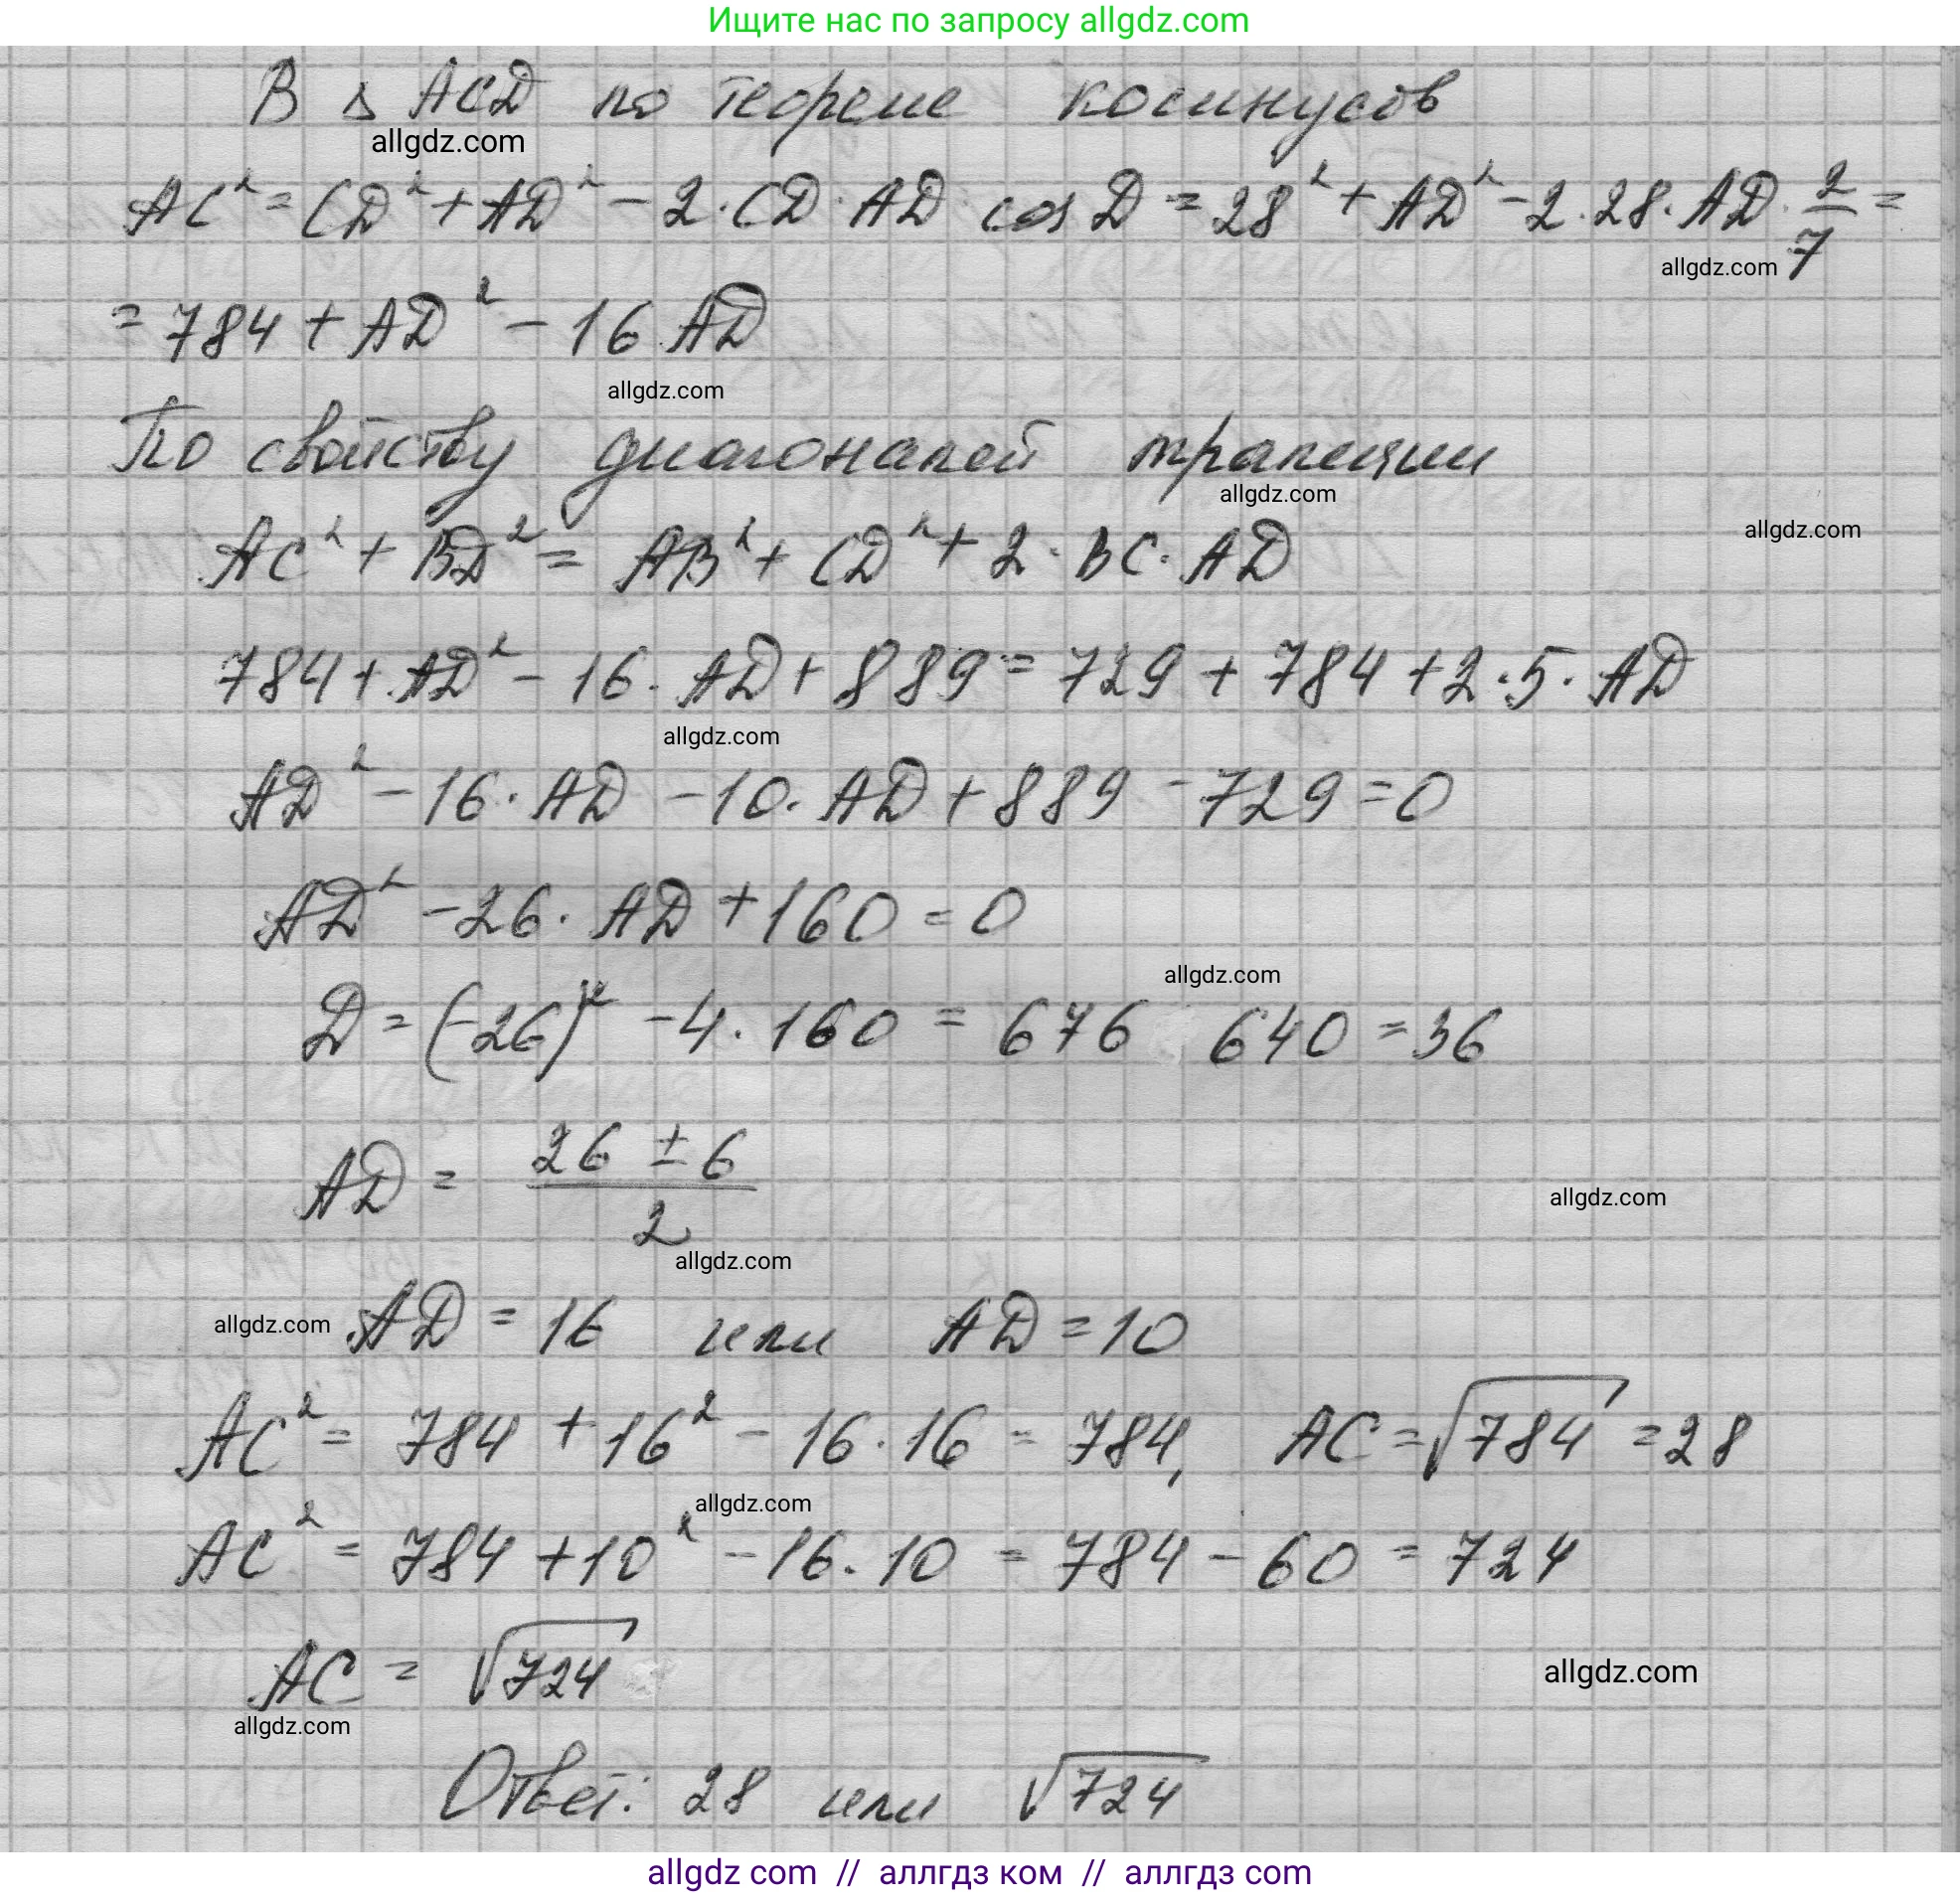 Ищите нас по запросу allgdz.com
В Δ ACD по теореме косинусов
allgdz.com
AC² = CD² + AD² - 2 · CD · AD cos D = 28² + AD² - 2 · 28 · AD · 2/7 =
allgdz.com
= 784 + AD² - 16 AD
allgdz.com
По свойству диагоналей трапеции
allgdz.com
allgdz.com
AC² + BD² = AB² + CD² + 2 · BC · AD
784 + AD² - 16 · AD + 889 = 729 + 784 + 2 · 5 · AD
allgdz.com
AD² - 16 · AD - 10 · AD + 889 - 729 = 0
AD² - 26 · AD + 160 = 0
allgdz.com
D = (-26)² - 4 · 160 = 676 640 = 36
AD = (26 ± 6)/2
allgdz.com
allgdz.com
allgdz.com AD = 16 или AD = 10
AC² = 784 + 16² - 16 · 16 = 784, AC = √784 = 28
allgdz.com
AC² = 784 + 10² - 16 · 10 = 784 - 60 = 724
AC = √724
allgdz.com
allgdz.com
Ответ: 28 или √724
allgdz com // аллгдз ком // аллгдз com